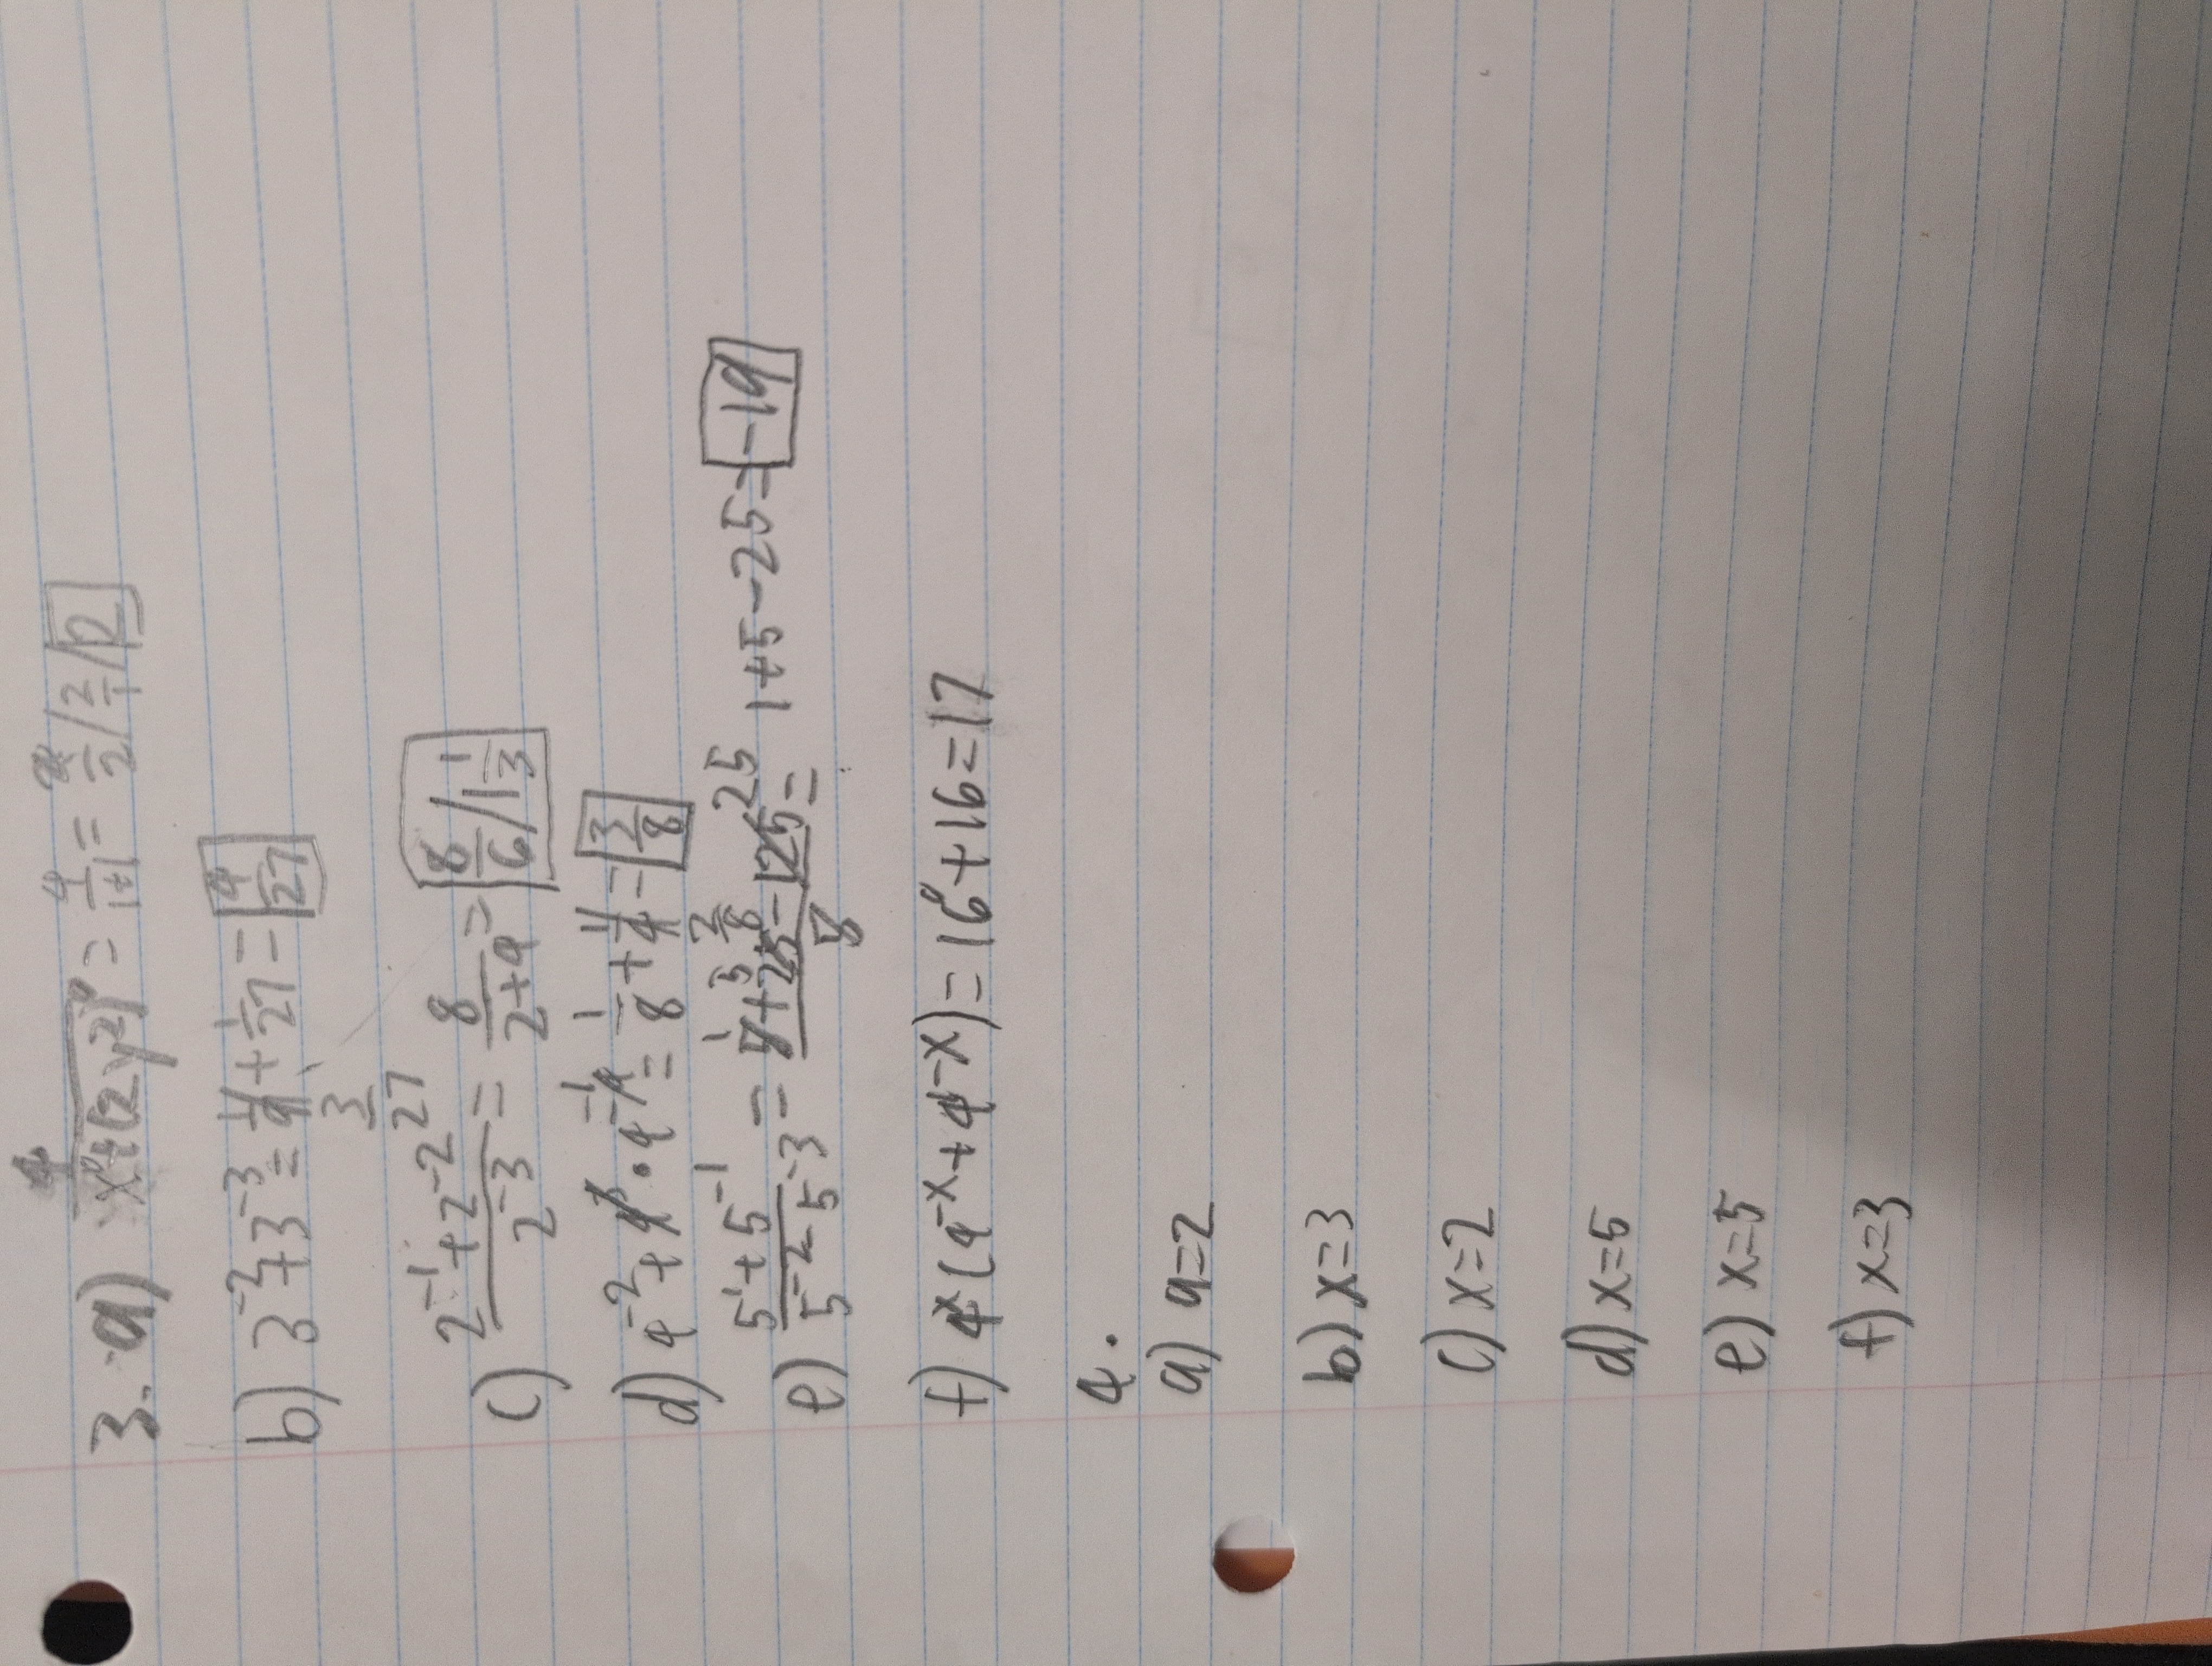 3. a) 4/(x⁰+(2y²)⁰) = 4/(1+1) = 4/2 / 2/1 / 2
b) 3⁻²+3⁻³ = 1/9 + 1/27 = 4/27
3/27
c) (2⁻¹+2⁻²)/2⁻³ = 8/(2+4) = 8/6 / 1 1/3
d) 4⁻²+4³·4⁻⁴ ⁻¹ = 1/8 + 1/4 = 3/8
2/8
e) (5¹+5⁻¹)/(5⁻²-5⁻³) = (5+25-125)/5 = 1+5-25=-19
1 5 25
f) 4ˣ(4⁻ˣ+4¹⁻ˣ)=16⁰+16=17
4.
a) a=2
b) x=3
c) x=2
d) x=5
e) x=5
f) x=3